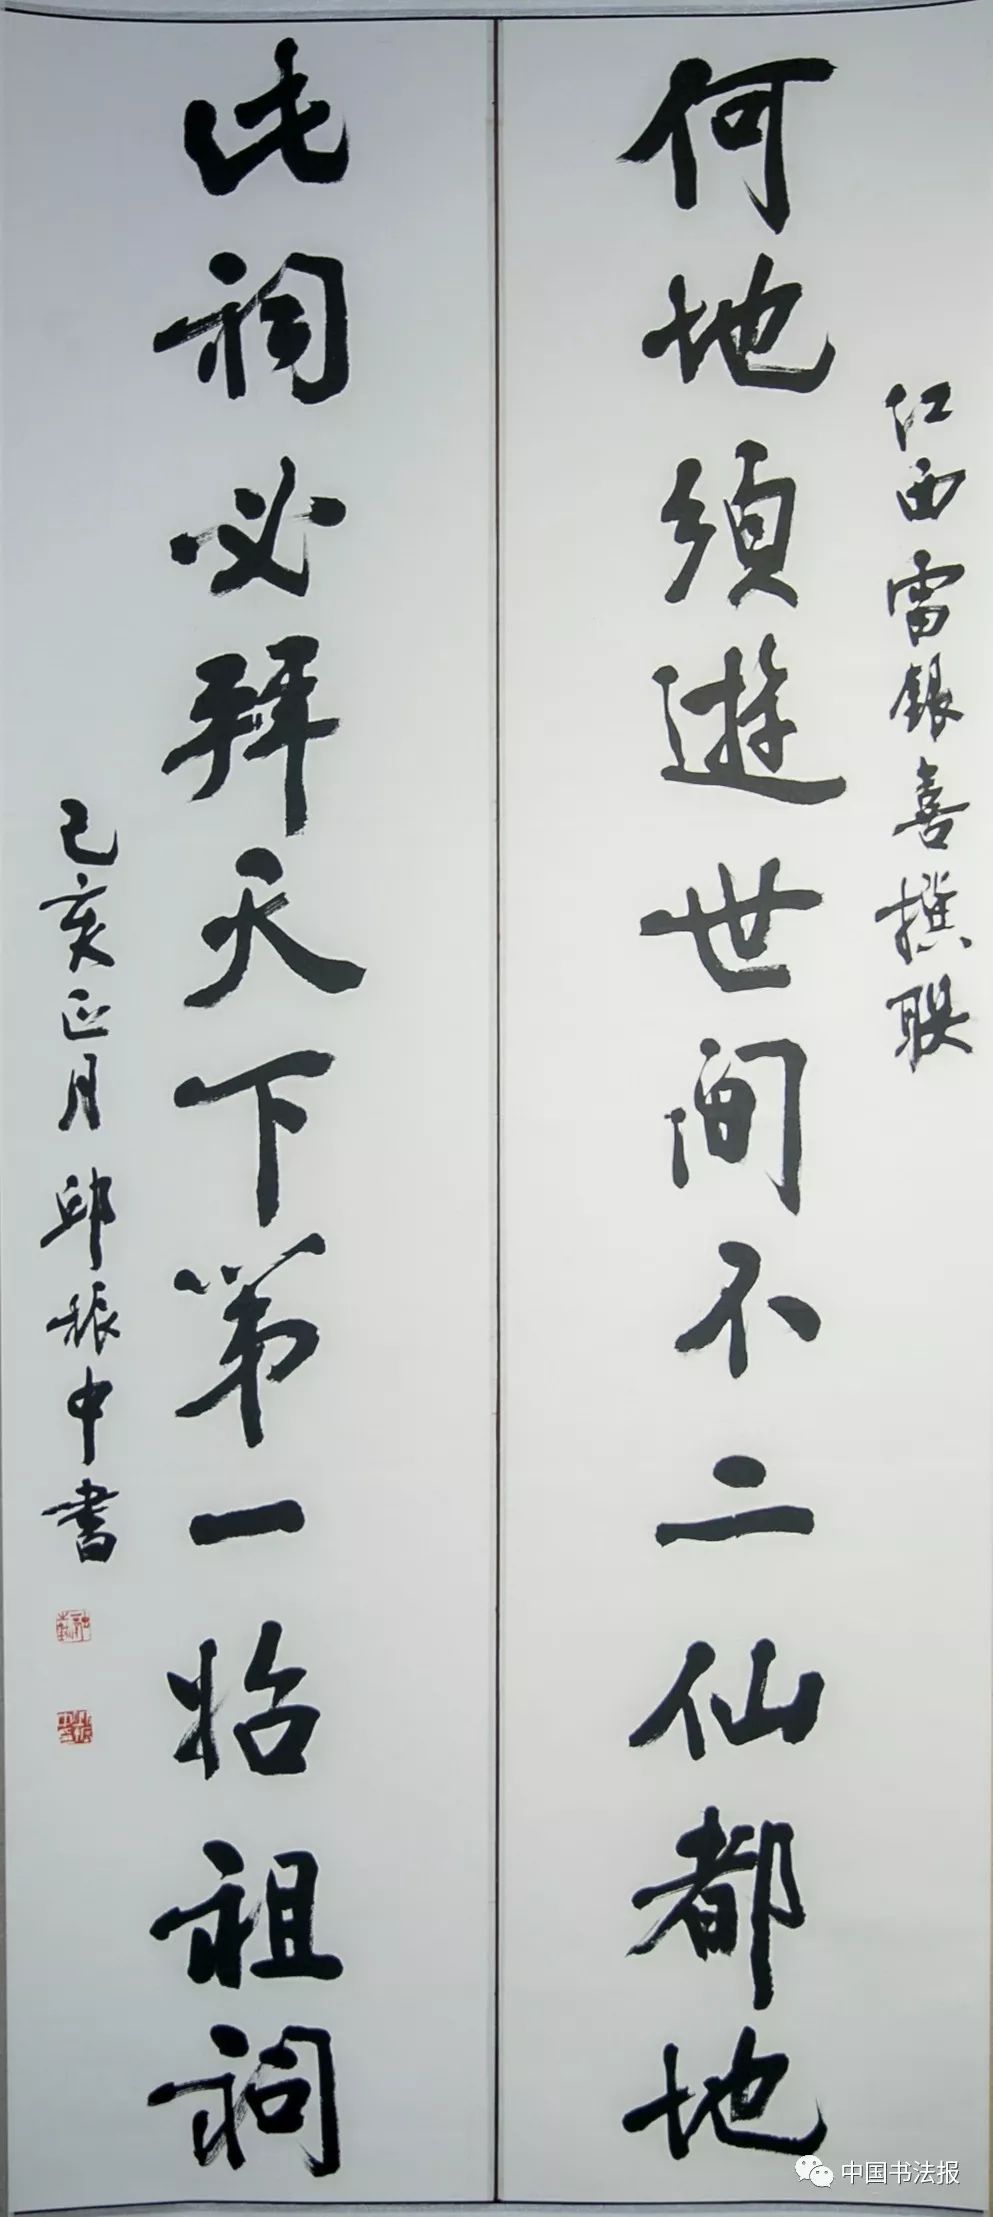 江西雷银喜撰联
何地须遊世间不二仙都地
此祠必拜天下第一始祖祠
己亥正月邱振中书
中国书法报